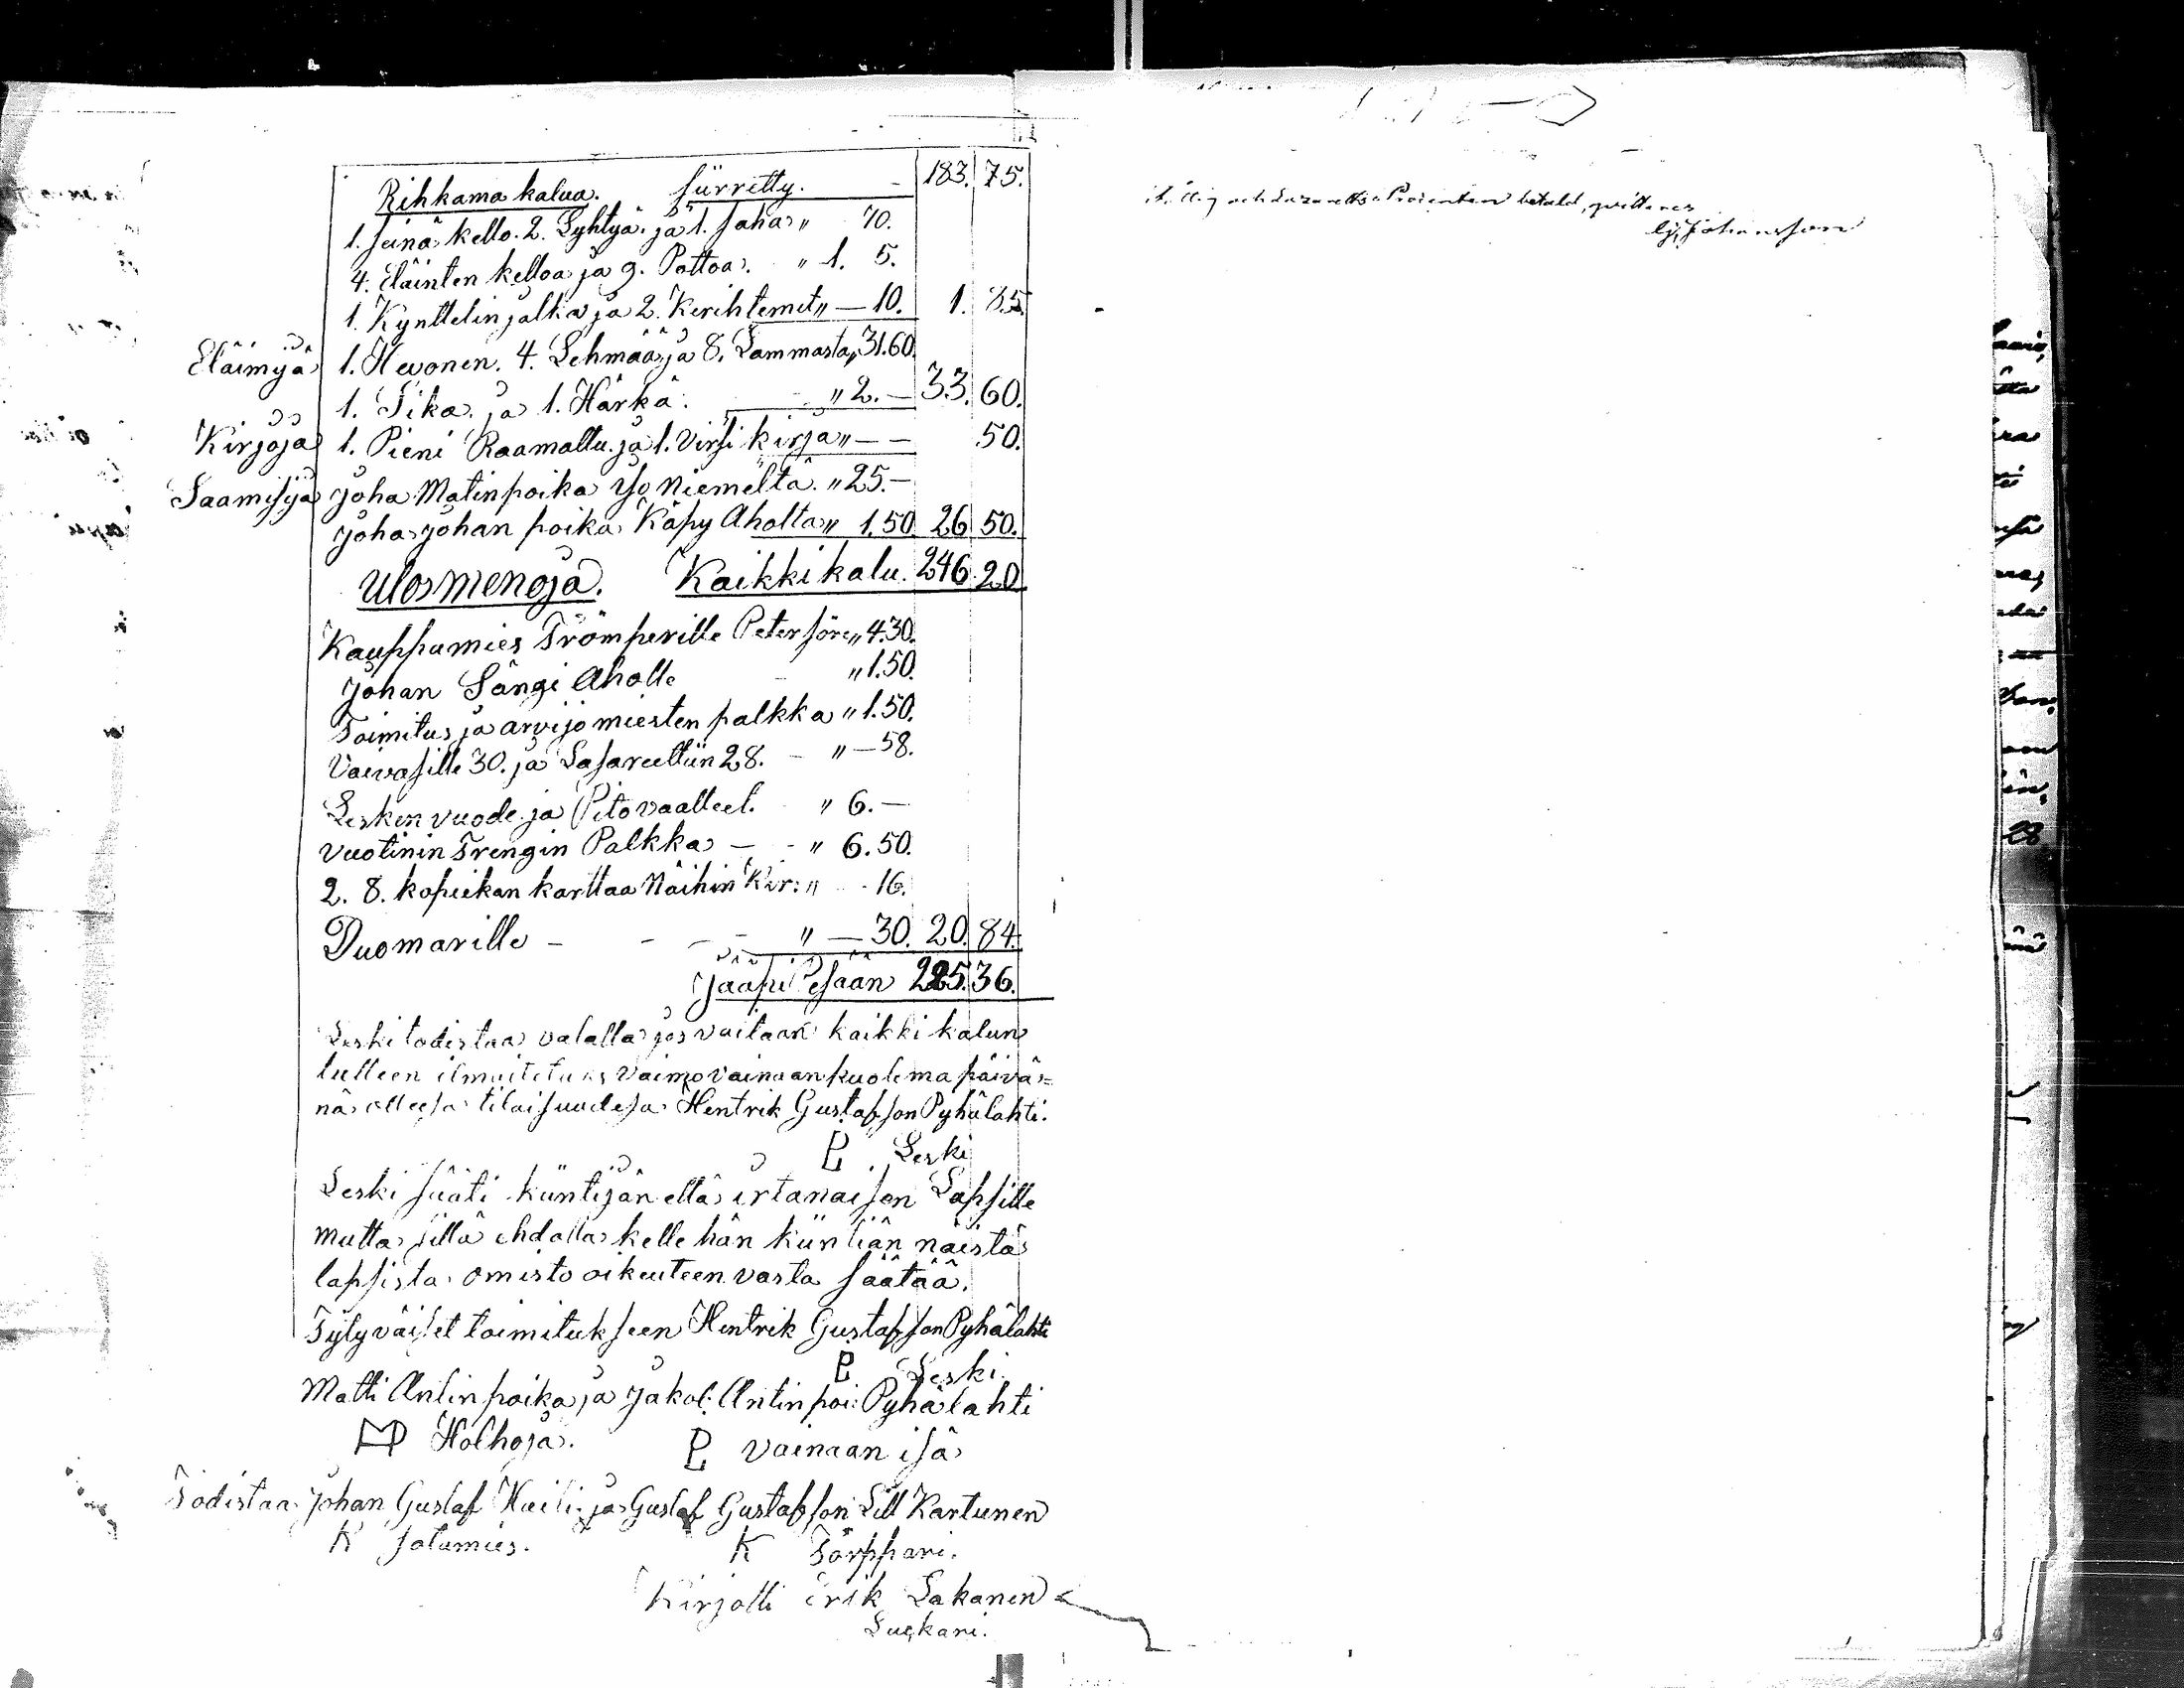 Rihkama kalua. siirretty. - 183. 75.
1. seinä kello. 2. Lyhtyä. ja 1. saha " 70.
4. Eläinten kelloa ja 9. Pottoa. " 1. 5.
1. Kynttelin jalka ja 2. Kerihtemet " — 10. 1. 85.
Eläimyä 1. Hevonen. 4. Lehmää ja 8. Lammasta, 31.60.
1. Sika. ja 1. Härkä. " 2. — 33. 60.
Kirjoja 1. Pieni Raamattu. ja 1. Virsi kirja " — — 50.
Saamisija Joha Matinpoika Yso Niemeltä. " 25. —
Joha Johan poika Käpy Aholta " 1.50. 26 50.
Ulosmenoja. Kaikki kalu. 246. 20
Kauppamies Trömperille Petersöre " 4.30.
Johan Sångi Aholle " 1.50.
Toimitus ja arvijo miesten palkka " 1.50.
Vaivasille 30. ja Lasareettiin 28. - " — 58.
Lesken vuode. ja Pitovaatteet. " 6. —
Vuotinin Trengin Palkka — - " 6. 50.
2. 8. kopeikan karttaa Näihin Kir: " 16.
Duomarille - - - - " — 30. 20. 84.
Jääpi Pesään 225. 36.
Leski todistaa valalla jos vaitaan kaikki kalun
tulleen ilmoitetuks vaimovainaan kuolema päivä=
nä olleesa tilaisuudesa Hentrik Gustafson Pyhälahti.
Leski
Leski sääti küntijän ettâ irtanaisen Lapsille
mutta sillä ehdolla kelle hän küntiän näistä
lapsista omisto oikeuteen vasta säätää.
Tytyväiset toimitukseen Hentrik Gustafson Pyhälahti
Leski.
Matti Antinpoika ja Jakob: Antinpoi: Pyhälahti
Holhoja. Vainaan isä
Todistaa Johan Gustaf ja Gustaf Gustafson Lill Kartunen
K sotamies. K Torppari.
Kirjotti Erik Lakanen
Lukkari.
och Lazaretts Procenten betald, qvitteres
Johansson